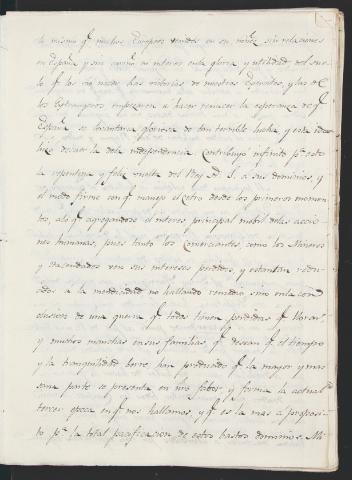 lo mismo q.e muchos Europeos venidos en su niñez sin relaciones
en España y sin cariño ni interes en la gloria y utilidad del sue
lo q.e los vió nacer. Las victorias de nuestros Exercitos, y las de
los Extrangeros empezaron a hacer renacer la esperanza de q.e
España se levantaria gloriosa de tan terrible lucha, y esta idea
hizo decaer la de la independencia. Contribuyó infinito p.a esto
la repentina y feliz vuelta del Rey N. S. a sus dominios, y
el modo firme con q.e manejo el cetro desde los primeros momen
tos, a lo q.e agregandose el interes principal mobil de las accio
nes humanas, pues tanto los Comerciantes como los Mineros
y hacendados ven sus intereses perdidos, y estarian redu
cidos a la mendicidad no hallando remedio sino en la con
clusion de una guerra q.e todos tienen perdidas q.e llorar
y muchos manchas en sus familias q.e desean q.e el tiempo
y la tranquilidad borre, han producido q.e la mayor y mas
sana parte se presenta en nro. fabor, y forma la actual
tercer epoca en q.e nos hallamos, y q.e es la mas a proposi
to p.a la total pacificacion de estos bastos dominios. Mi